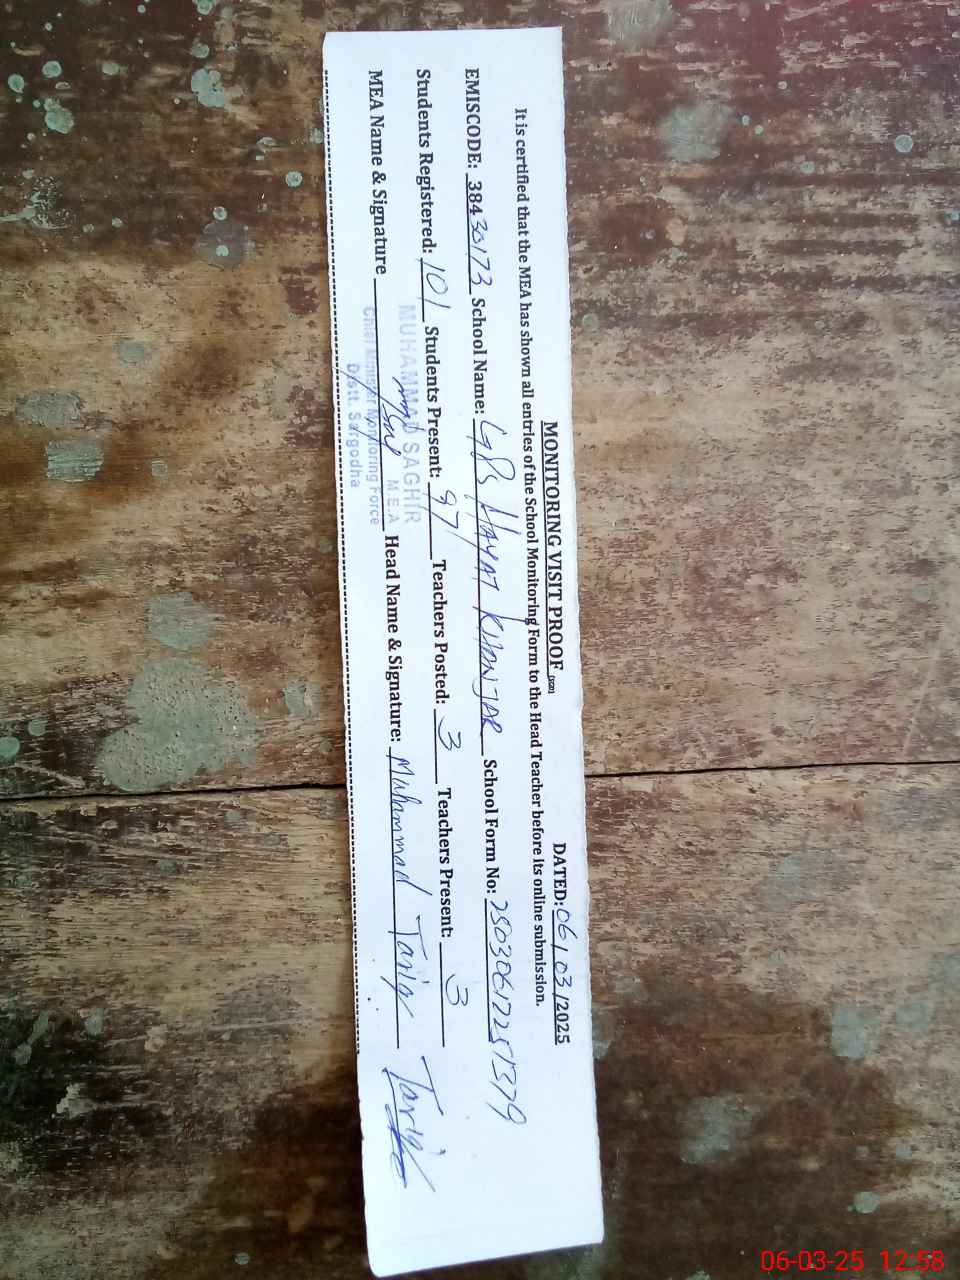 MONITORING VISIT PROOF (SGD) DATED: 06/03/2025
It is certified that the MEA has shown all entries of the School Monitoring Form to the Head Teacher before its online submission.
EMISCODE: 38430173 School Name: GPS HAYAT KHANJAR School Form No: 25030612251379
Students Registered: 101 Students Present: 97 Teachers Posted: 3 Teachers Present: 3
MEA Name & Signature Head Name & Signature: Muhammad Tariq Tariq
MUHAMMAD SAGHIR
M.E.A
Chief Minister Monitoring Force
Distt. Sargodha
06-03-25 12:58